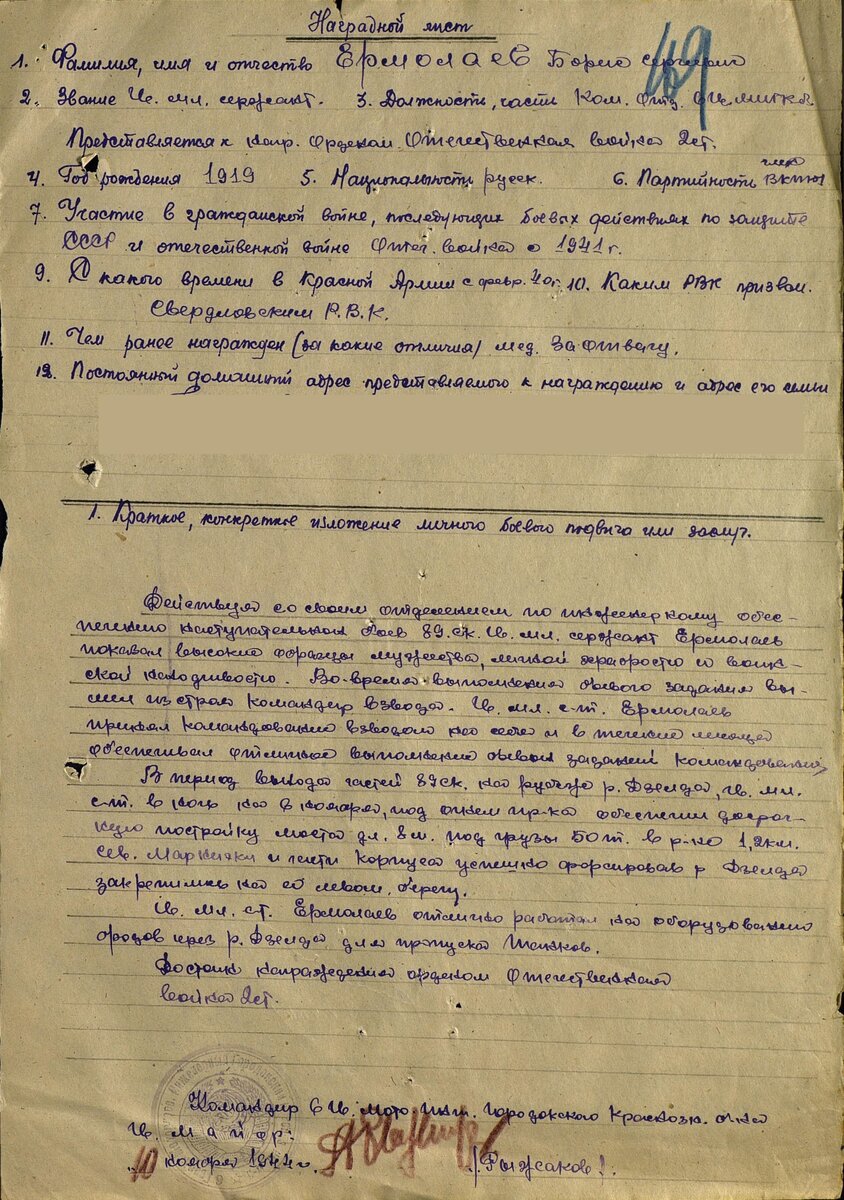 Наградной лист
49
1. Фамилия, имя и отчество Ермолаев Борис Сергеевич
2. Звание Гв. мл. сержант. 3. Должность, часть Ком. отд. 6 Гв. миибр
Представляется к нагр. Орденом Отечественная война 2 ст.
4. Год рождения 1919 5. Национальность русск. 6. Партийность член ВКП(б)
7. Участие в гражданской войне, последующих боевых действиях по защите
СССР и отечественной войне Отеч. война с 1941 г.
9. С какого времени в Красной Армии с февр. 40 г. 10. Каким РВК призван.
Свердловским Р.В.К.
11. Чем ранее награжден (за какие отличия) мед. За отвагу.
12. Постоянный домашний адрес представляемого к награждению и адрес его семьи
1. Краткое, конкретное изложение личного боевого подвига или заслуг.
Действуя со своим отделением по инженерному обес-
печению наступательных боев 89 ск. Гв. мл. сержант Ермолаев
показал высокие образцы мужества, личной храбрости и воин-
ской находчивости. Во время выполнения боевого задания вы-
шел из строя командир взвода. Гв. мл. с-т. Ермолаев
принял командование взводом на себя и в течении месяца
обеспечивал отличное выполнение боевых заданий командования,
В период выхода частей 89 ск. на рубеж р. Дзелда, гв. мл.
с-т. в ночь на 2 ноября, под огнем пр-ка обеспечил досроч-
ную постройку моста дл. 8 м. под грузы 50 т. в р-не 1,2 км.
сев. и части корпуса успешно форсировав р. Дзелда
закрепились на ее левом берегу.
Гв. мл. с-т. Ермолаев отлично работал на оборудовании
бродов через р. Дзелда для пропуска танков.
Достоин награждения орденом Отечественная
война 2 ст.
Командир 6 Гв. мото инж. Городокского Краснозн. б-на
Гв. майор:
/Рыжаков/.
„10 ноября 1944 г.